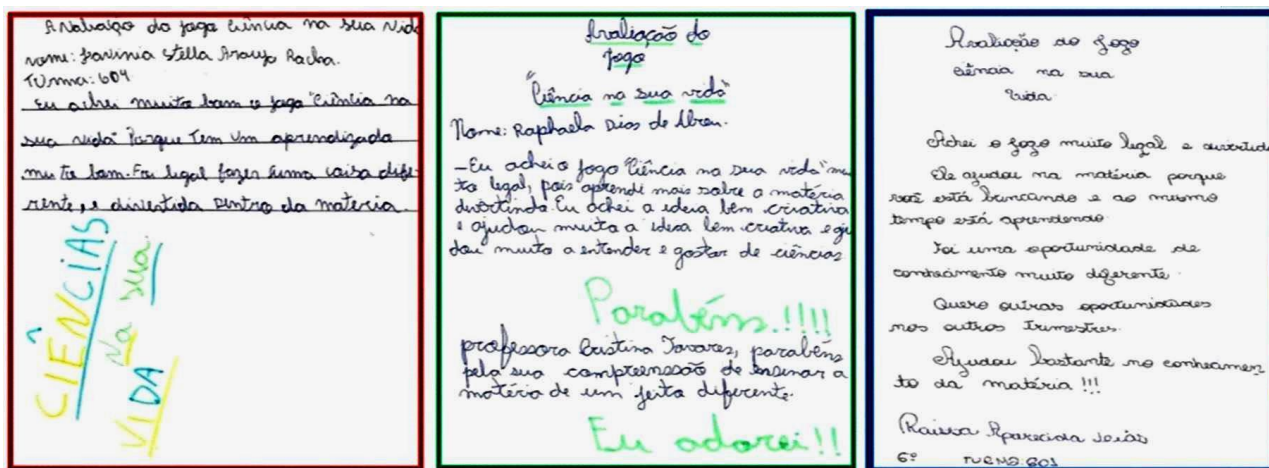 Avaliação do jogo Ciência na sua vida
nome: Lavinia Stella Araujo Rocha.
Turma: 604
Eu achei muito bom o jogo "Ciência na
sua vida" Porque Tem um aprendizado
muito bom. Foi legal fazer uma coisa dife-
rente, e divertida dentro da materia.
CIÊNCIAS
Na sua
VIDA
Avaliação do
jogo
"Ciência na sua vida"
Nome: Raphaela Dias de Abreu.
- Eu achei o jogo "Ciência na sua vida" mui
to legal, pois aprendi mais sobre a matéria
divertindo. Eu achei a ideia bem criativa
e ajudou muito a ideia bem criativa e aju
dou muito a entender e gostar de ciências
Parabéns.!!!!
professora Cristina Tavares, parabéns
pela sua compreenssão de ensinar a
matéria de um jeito diferente.
Eu adorei!!
Avaliação do jogo
ciência na sua
vida
Achei o jogo muito legal e divertido
Ele ajudou na matéria porque
você está brincando e ao mesmo
tempo está aprendendo.
Foi uma oportunidade de
conhecimento muito diferente.
Quero outras oportunidades
nos outros trimestres.
Ajudou bastante no conhecimen-
to da matéria!!!
Raissa Aparecida
6º TURMA: 601